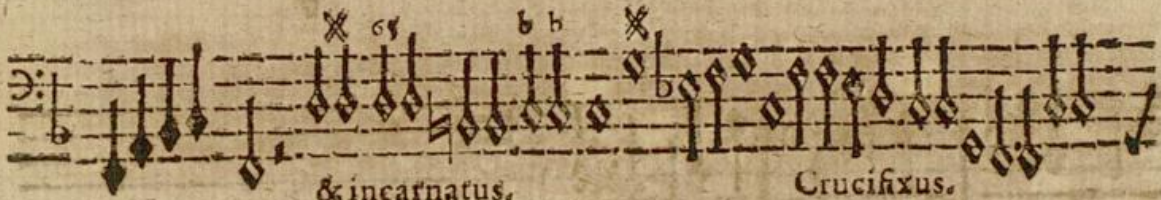 65 b b
& incarnatus. Crucifixus.